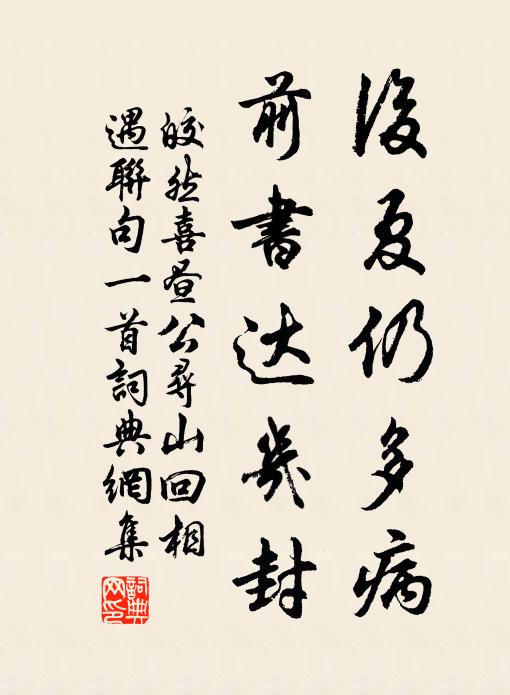 後夏仍多病
前書达幾封
皎然喜昼公尋山回相
遇聯句一首詞典網集
詞典
网印